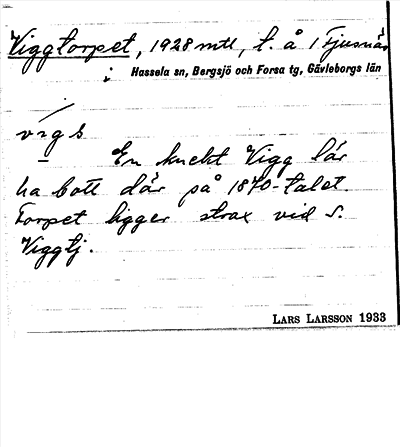 Viggtorpet, 1928 mtl, t. å 1 Tjusnäs
i Hassela sn, Bergsjö och Forsa tg, Gävleborgs län
vigs
En knekt Vigg lär
ha bott där på 1870-talet.
Torpet ligger strax vid S.
Viggtj.
LARS LARSSON 1933